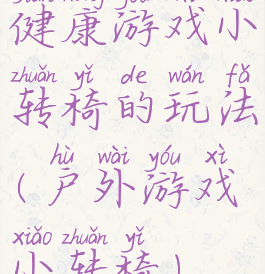 健康游戏小
zhuǎn yǐ de wán fǎ
转椅的玩法
hù wài yóu xì
(户外游戏
xiǎo zhuǎn yǐ
小转椅)